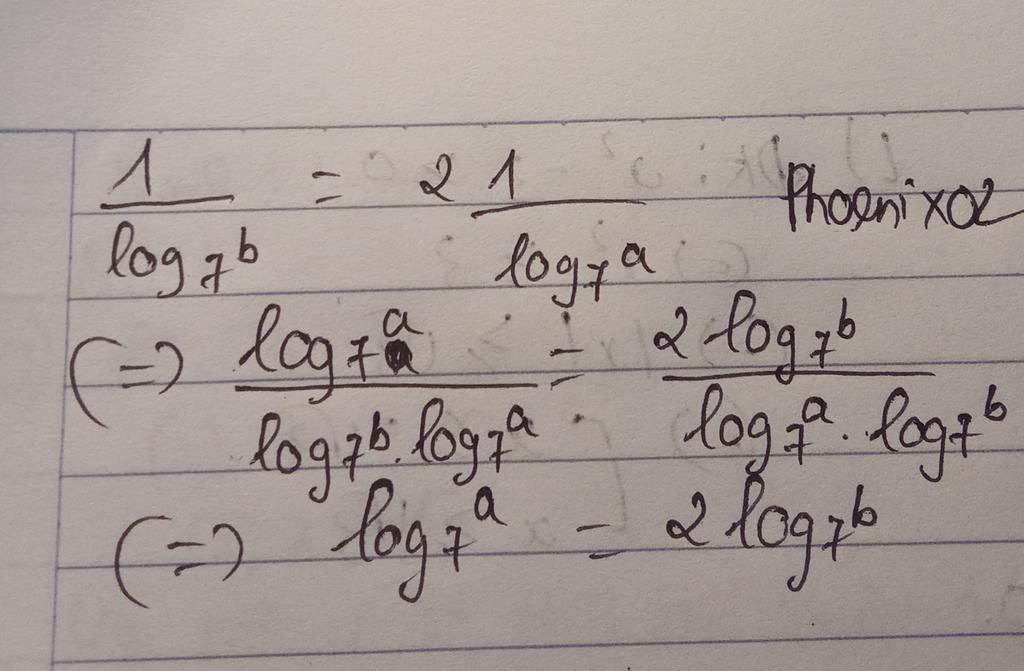 1/log₇b = 2 1/log₇a Phoenix02
(=) log₇a/log₇b.log₇a = 2log₇b/log₇a.log₇b
(=) log₇a = 2log₇b